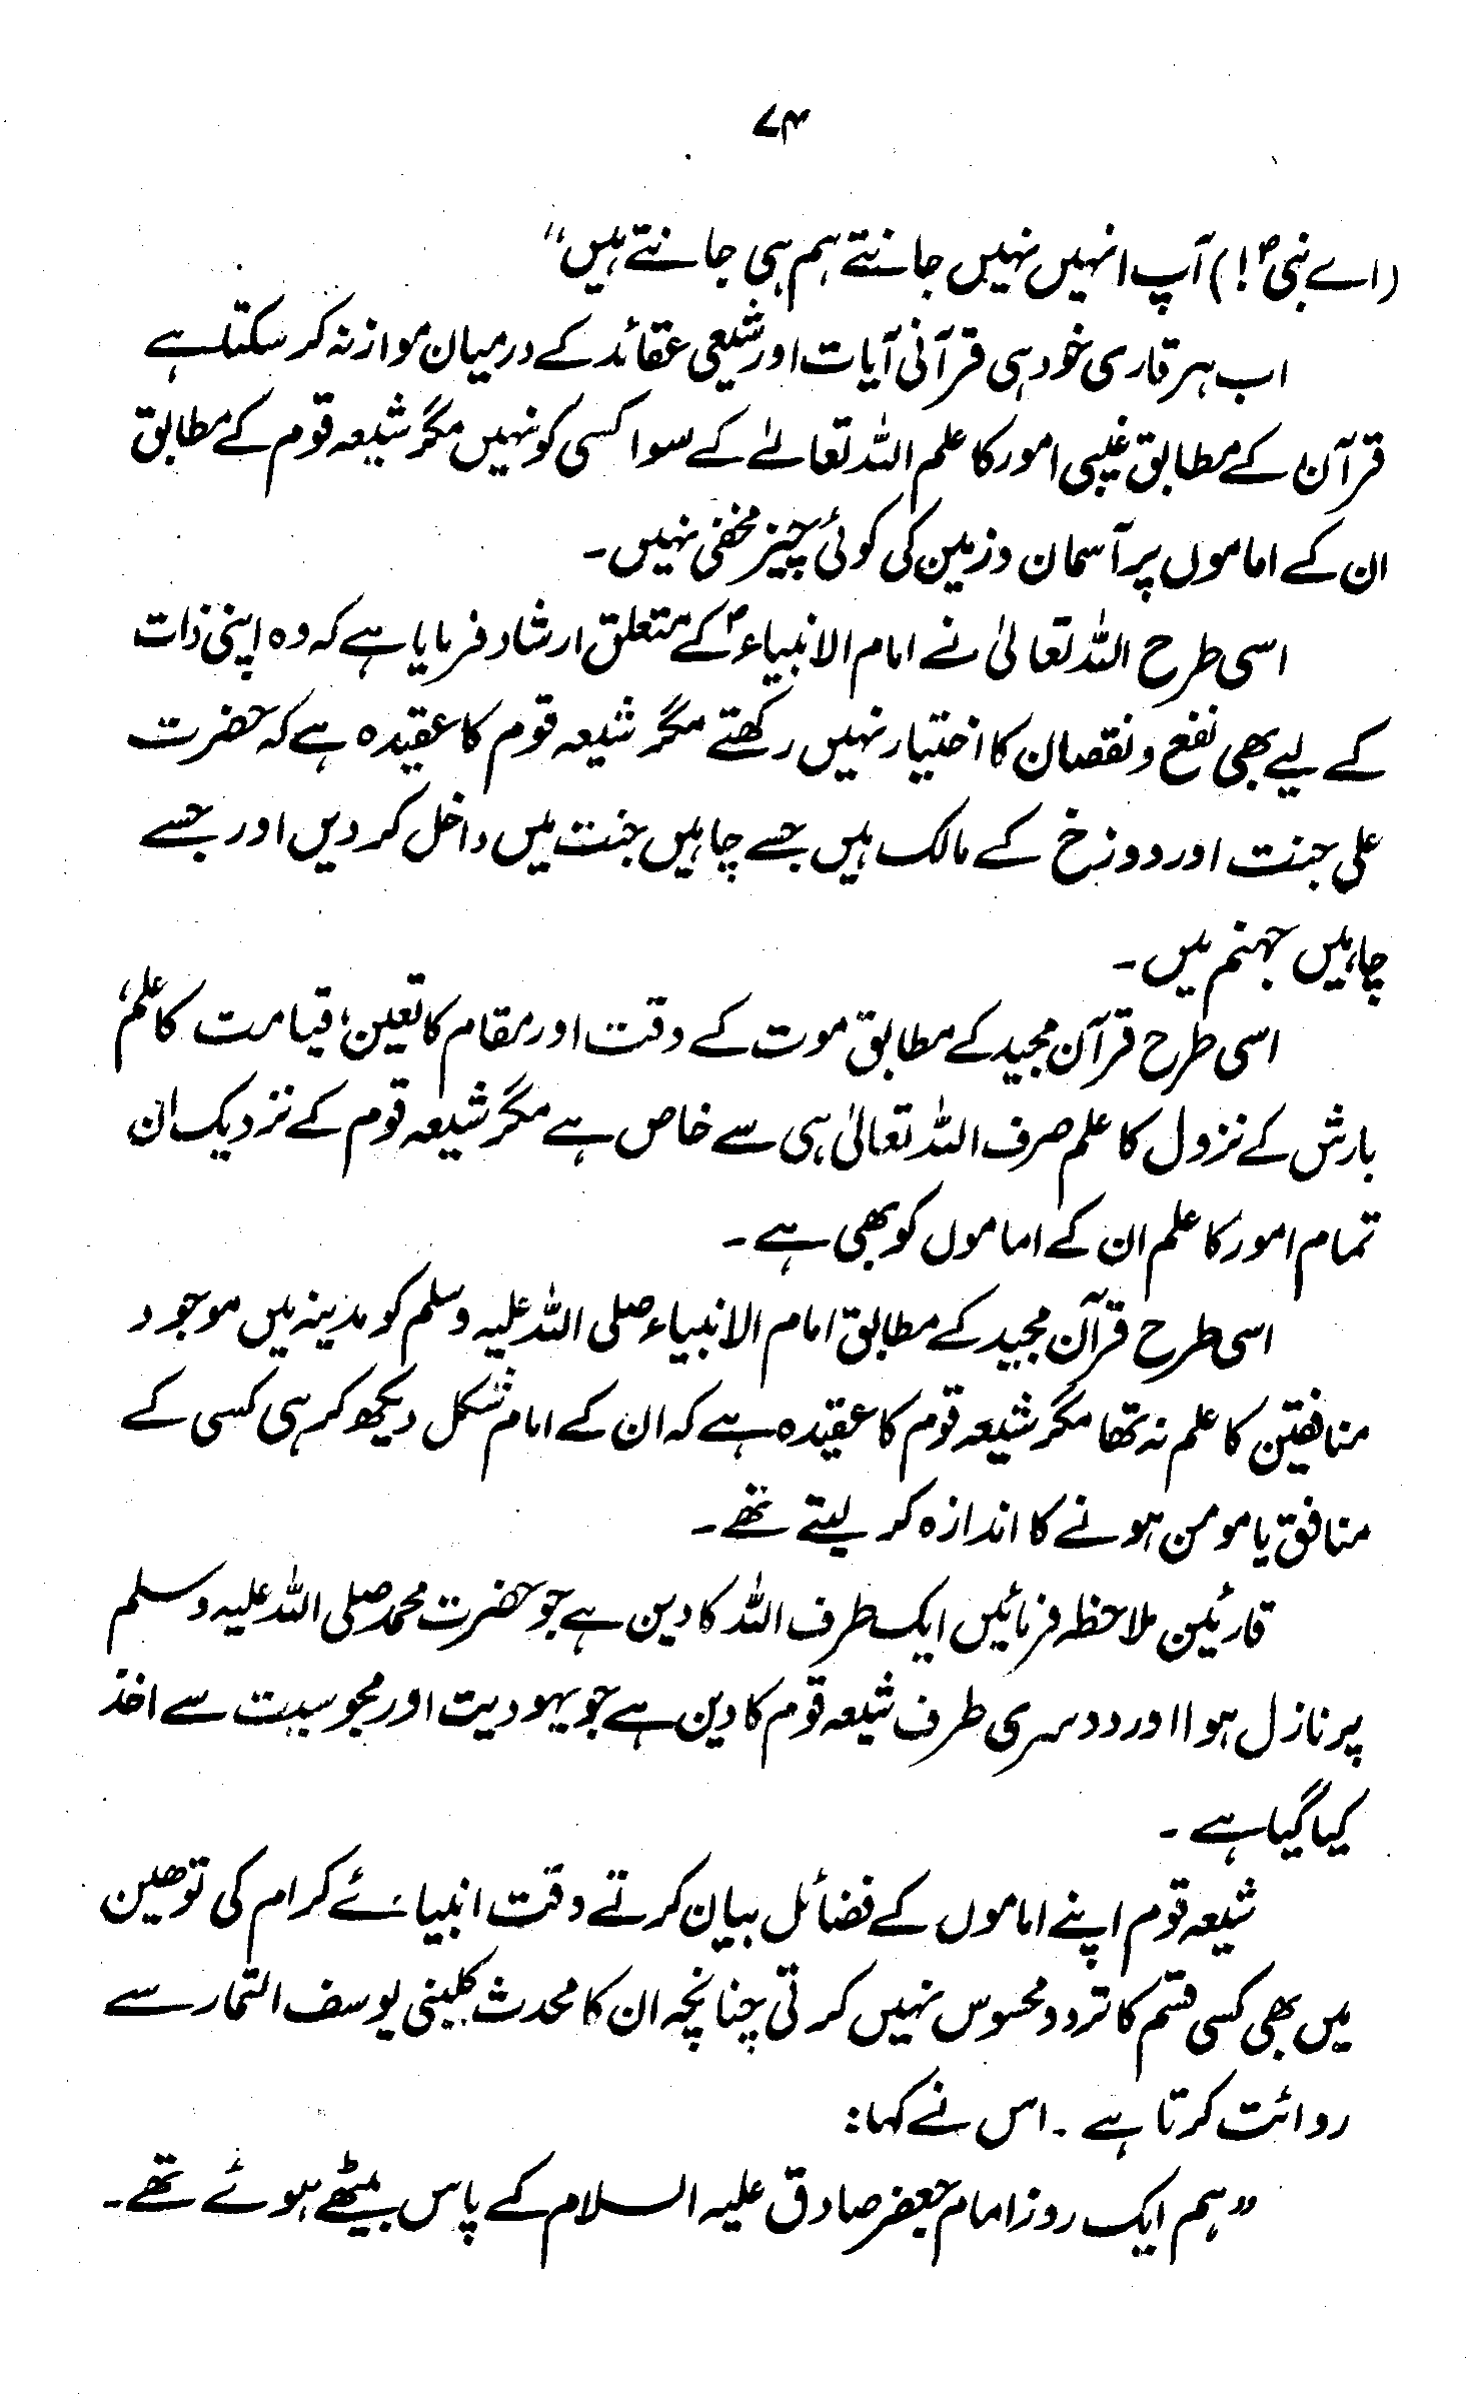 ۷۴
(اے نبیؐ!) آپ انہیں نہیں جانتے ہم ہی جانتے ہیں"
اب ہر قاری خود ہی قرآنی آیات اور شیعی عقائد کے درمیان موازنہ کر سکتا ہے
قرآن کے مطابق غیبی امور کا علم اللہ تعالےٰ کے سوا کسی کو نہیں مگر شیعہ قوم کے مطابق
ان کے اماموں پر آسمان و زمین کی کوئی چیز مخفی نہیں۔
اسی طرح اللہ تعالیٰ نے امام الانبیاءؐ کے متعلق ارشاد فرمایا ہے کہ وہ اپنی ذات
کے لیے بھی نفع و نقصان کا اختیار نہیں رکھتے مگر شیعہ قوم کا عقیدہ ہے کہ حضرت
علی جنت اور دوزخ کے مالک ہیں جسے چاہیں جنت میں داخل کر دیں اور جسے
چاہیں جہنم میں۔
اسی طرح قرآن مجید کے مطابق موت کے وقت اور مقام کا تعین، قیامت کا علم،
بارش کے نزول کا علم صرف اللہ تعالیٰ ہی سے خاص ہے مگر شیعہ قوم کے نزدیک ان
تمام امور کا علم ان کے اماموں کو بھی ہے۔
اسی طرح قرآن مجید کے مطابق امام الانبیاء صلی اللہ علیہ وسلم کو مدینہ میں موجود
منافقین کا علم نہ تھا مگر شیعہ قوم کا عقیدہ ہے کہ ان کے امام شکل دیکھ کر ہی کسی کے
منافق یا مومن ہونے کا اندازہ کر لیتے تھے۔
قارئین ملاحظہ فرمائیں ایک طرف اللہ کا دین ہے جو حضرت محمد صلی اللہ علیہ وسلم
پر نازل ہوا اور دوسری طرف شیعہ قوم کا دین ہے جو یہودیت اور مجوسیت سے اخذ
کیا گیا ہے۔
شیعہ قوم اپنے اماموں کے فضائل بیان کرتے وقت انبیائے کرام کی توھین
میں بھی کسی قسم کا تردد محسوس نہیں کرتی چنانچہ ان کا محدث کلینی یوسف التمار سے
روائت کرتا ہے۔ اس نے کہا:
"ہم ایک روز امام جعفر صادق علیہ السلام کے پاس بیٹھے ہوئے تھے۔